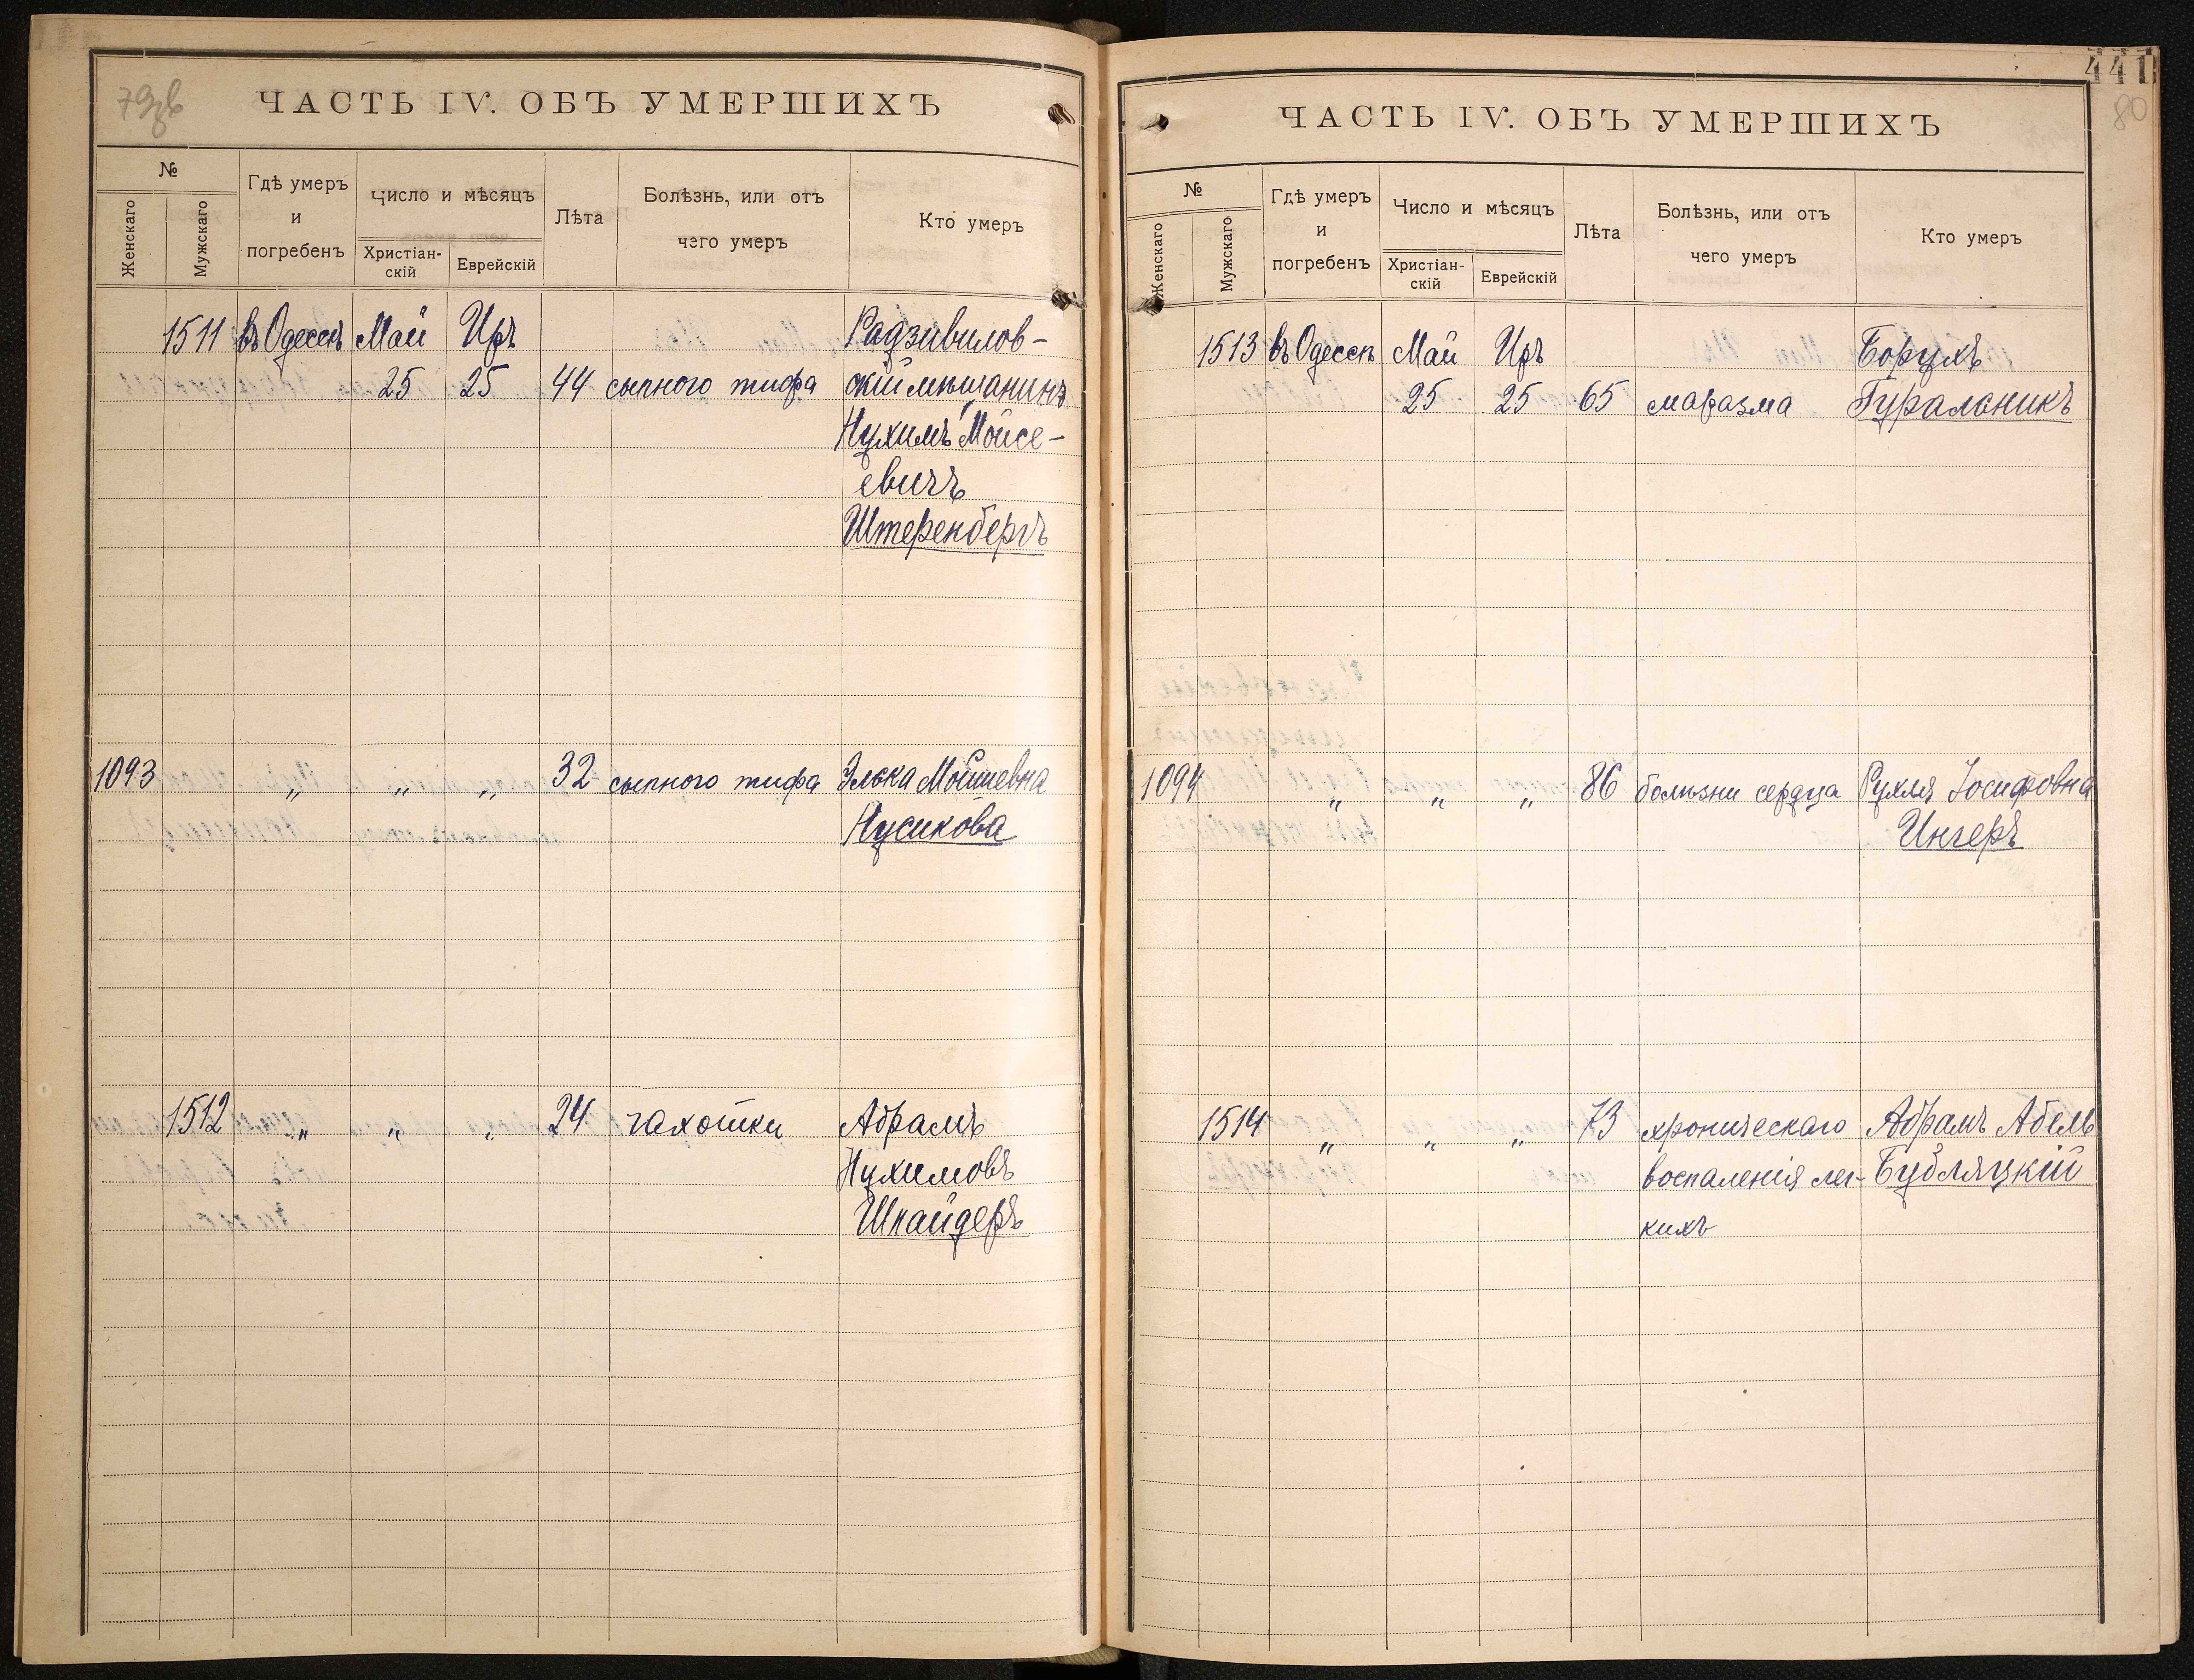 79об
ЧАСТЬ IV. ОБЪ УМЕРШИХЪ
№
Женскаго
Мужскаго
Гдѣ умеръ
и
погребенъ
Число и мѣсяцъ
Христіан-
скій
Еврейскій
Лѣта
Болѣзнь, или отъ
чего умеръ
Кто умеръ
1511 въ Одессѣ Май Иръ Радзивилов-
25 25 44 сыпного тифа скій мѣщанинъ
Нухимъ Мойсе-
евичъ
Штеренбергъ
1093 „ „ „ 32 сыпного тифа Элька Мошиевна
Нусикова
1512 „ „ „ 24 чахотки Абрамъ
Нухимовъ
Шнайдеръ
441
80
ЧАСТЬ IV. ОБЪ УМЕРШИХЪ
№
Женскаго
Мужскаго
Гдѣ умеръ
и
погребенъ
Число и мѣсяцъ
Христіан-
скій
Еврейскій
Лѣта
Болѣзнь, или отъ
чего умеръ
Кто умеръ
1513 въ Одессѣ Май Иръ Борухъ
25 25 65 маразма Гуральникъ
1094 „ „ „ 86 болѣзни сердца Рухля Іосифовна
Ингеръ
1514 „ „ „ 73 хроническаго Абрамъ Абель
воспаленія лег- Бубляцкій
кихъ